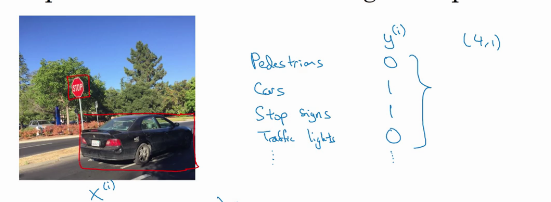 y^(i)
(4,1)
Pedestrians 0
Cars 1
STOP
Stop signs 1
Traffic lights 0
⋮ ⋮
x^(i)